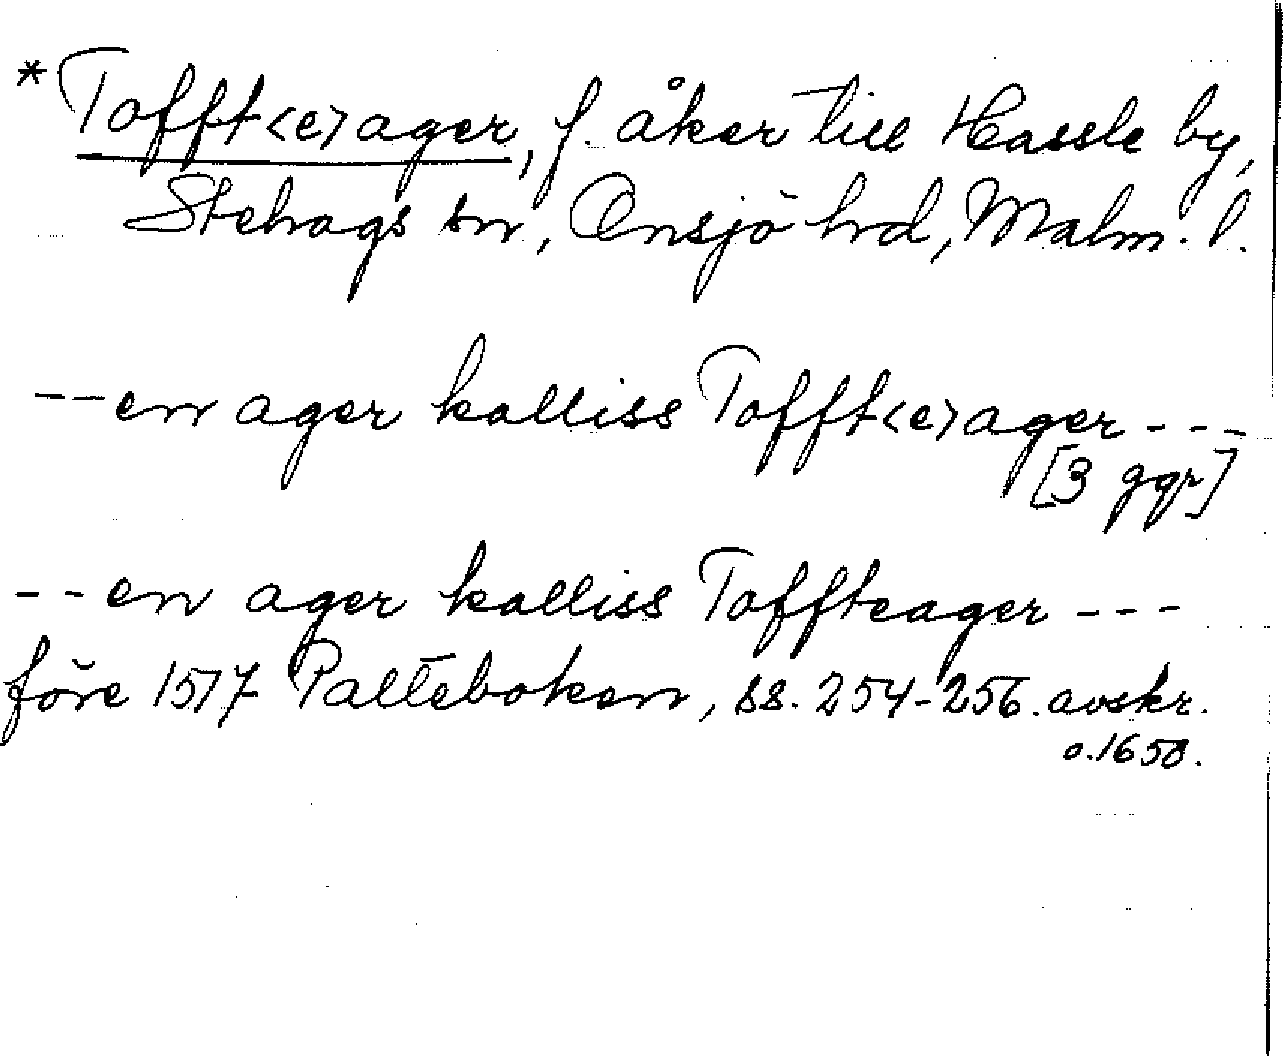 *Tofft<e>ager, f. åker till Hassle by,
Stehags sn, Onsjö hrd, Malm. l.
--en ager kalliss Tofft<e>ager---
[3 ggr]
--en ager kalliss Toffteager---
före 1517 Palteboken, ss. 254-256. avskr.
o. 1650.